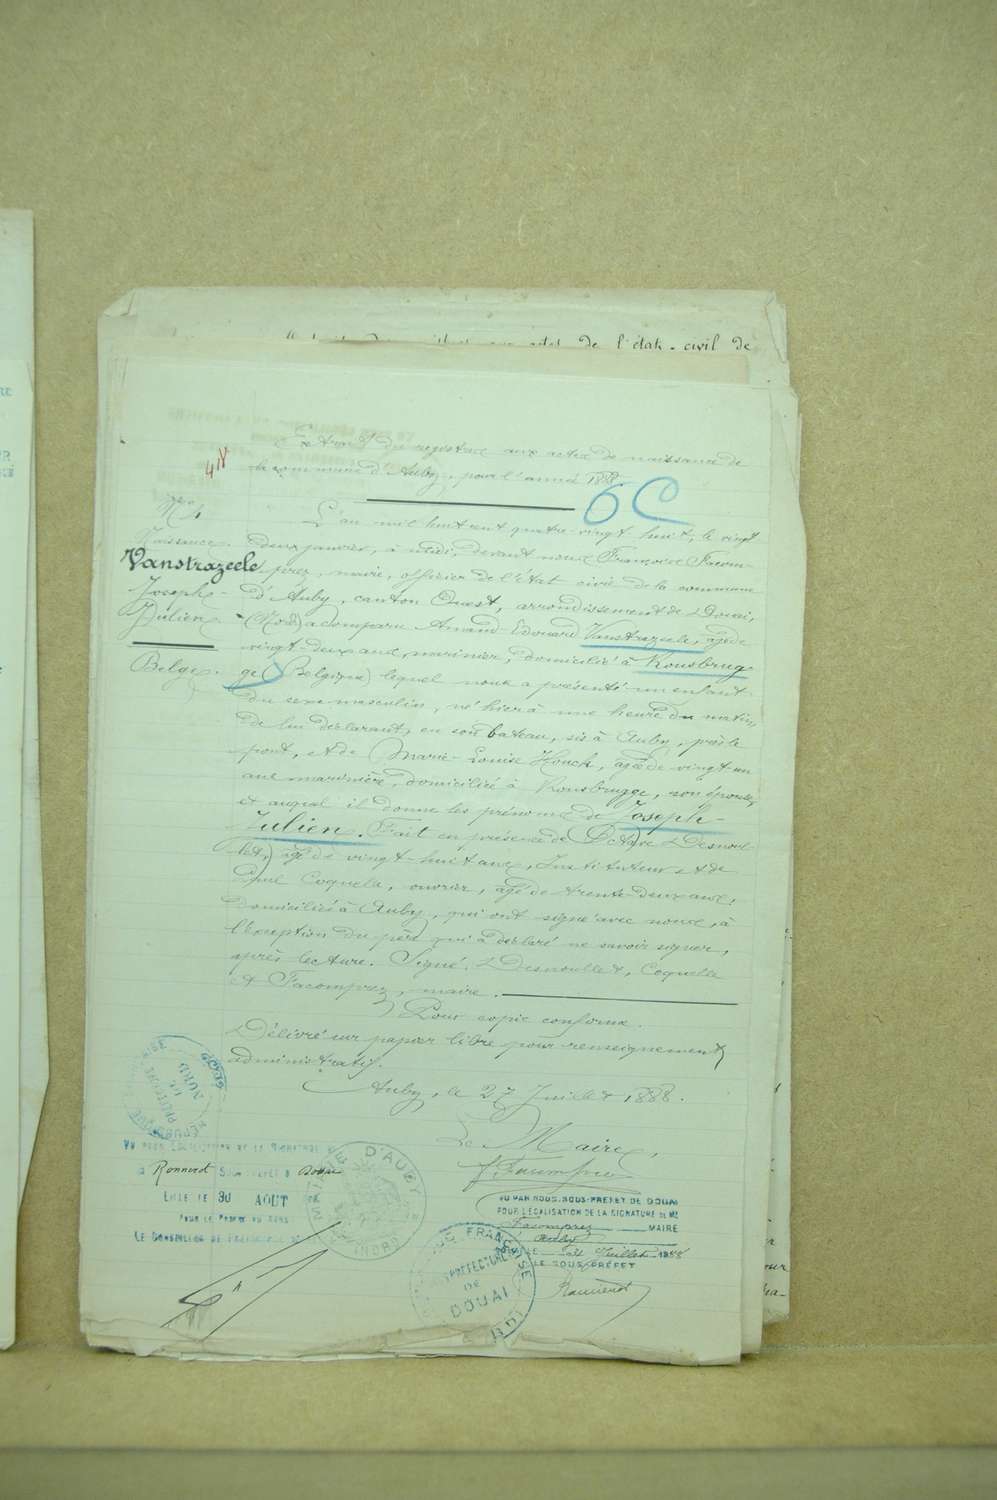 de l'état-civil de
Extrait du registre aux actes de naissance de
la commune d'Auby, pour l'année 1888
6C
N° 4.
Naissance
Vanstrazeele
Joseph-
Julien
Belge.
L'an mil huit cent quatre-vingt-huit, le vingt
deux janvier, à midi, devant nous François Facom-
prez, maire, officier de l'état civil de la commune
d'Auby, canton Ouest, arrondissement de Douai,
(Nord) a comparu Amand-Edouard Vanstrazeele, âgé de
vingt-deux ans, marinier, domicilié à Rousbrug
ge (Belgique) lequel nous a présenté un enfant
du sexe masculin, né hier à une heure du matin,
de lui déclarant, en son bateau, sis à Auby, près le
pont, et de Marie-Louise Houck, âgée de vingt un
ans marinière, domiciliée à Rousbrugge, son épouse,
et auquel il donne les prénoms de Joseph-
Julien. Fait en présence de Octave Desnoul
let, âgé de vingt-huit ans, Instituteur et de
Paul Coquelle, ouvrier, âgé de trente-deux ans,
domiciliés à Auby, qui ont signé avec nous, à
l'exception du père qui a déclaré ne savoir signer,
après lecture. Signé, Desnoullet, Coquelle
et Facomprez, maire.
Pour copie conforme.
Délivré sur papier libre pour renseignement
administratif.
Auby, le 27 Juillet 1888.
Le Maire,
F. Facomprez
RÉPUBLIQUE FRANÇAISE
PRÉFECTURE
DU
NORD
VU POUR LÉGALISATION DE LA SIGNATURE DE
Sous Préfet à Douai
LILLE LE 30 AOUT
POUR LE PREFET DU NORD
LE CONSEILLER DE PRÉFECTURE
MAIRIE D'AUBY
(NORD)
VU PAR NOUS, SOUS-PRÉFET DE DOUAI
POUR LÉGALISATION DE LA SIGNATURE DE Mr
Facomprez MAIRE
Auby
LE 31 Juillet 1888
LE SOUS-PRÉFET
FRANÇAISE
PRÉFECTURE
DE
DOUAI